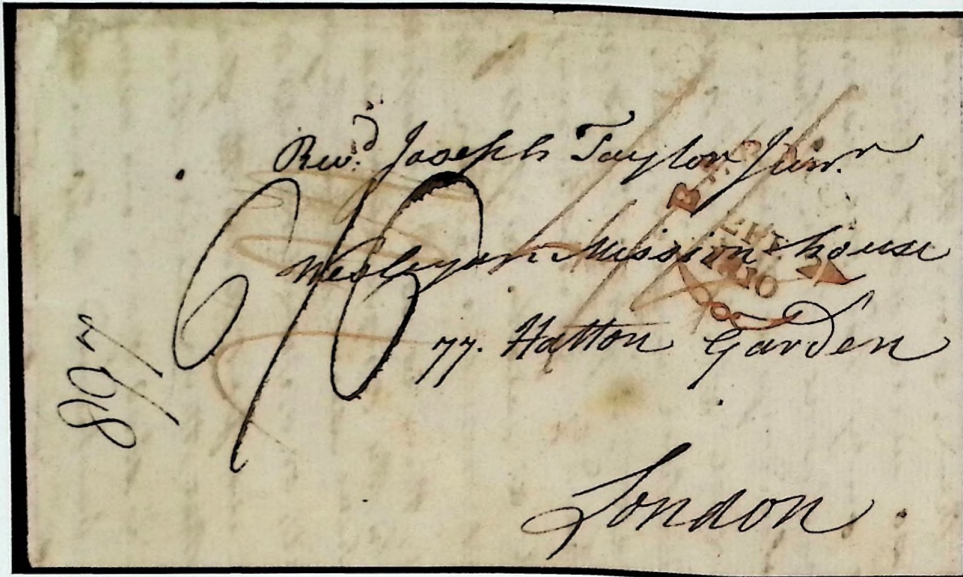 Revd. Joseph Taylor Junr.
Wesleyan Mission house
77. Hatton Garden
London